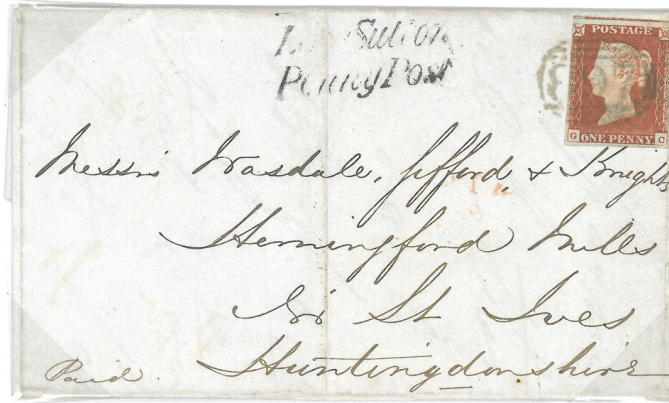 Sutton
Penny Post
POSTAGE
G C
ONE PENNY
Messrs Wasdale, Gifford, & Knights
Hemingford Mills
Nr St Ives
Huntingdonshire
Paid.